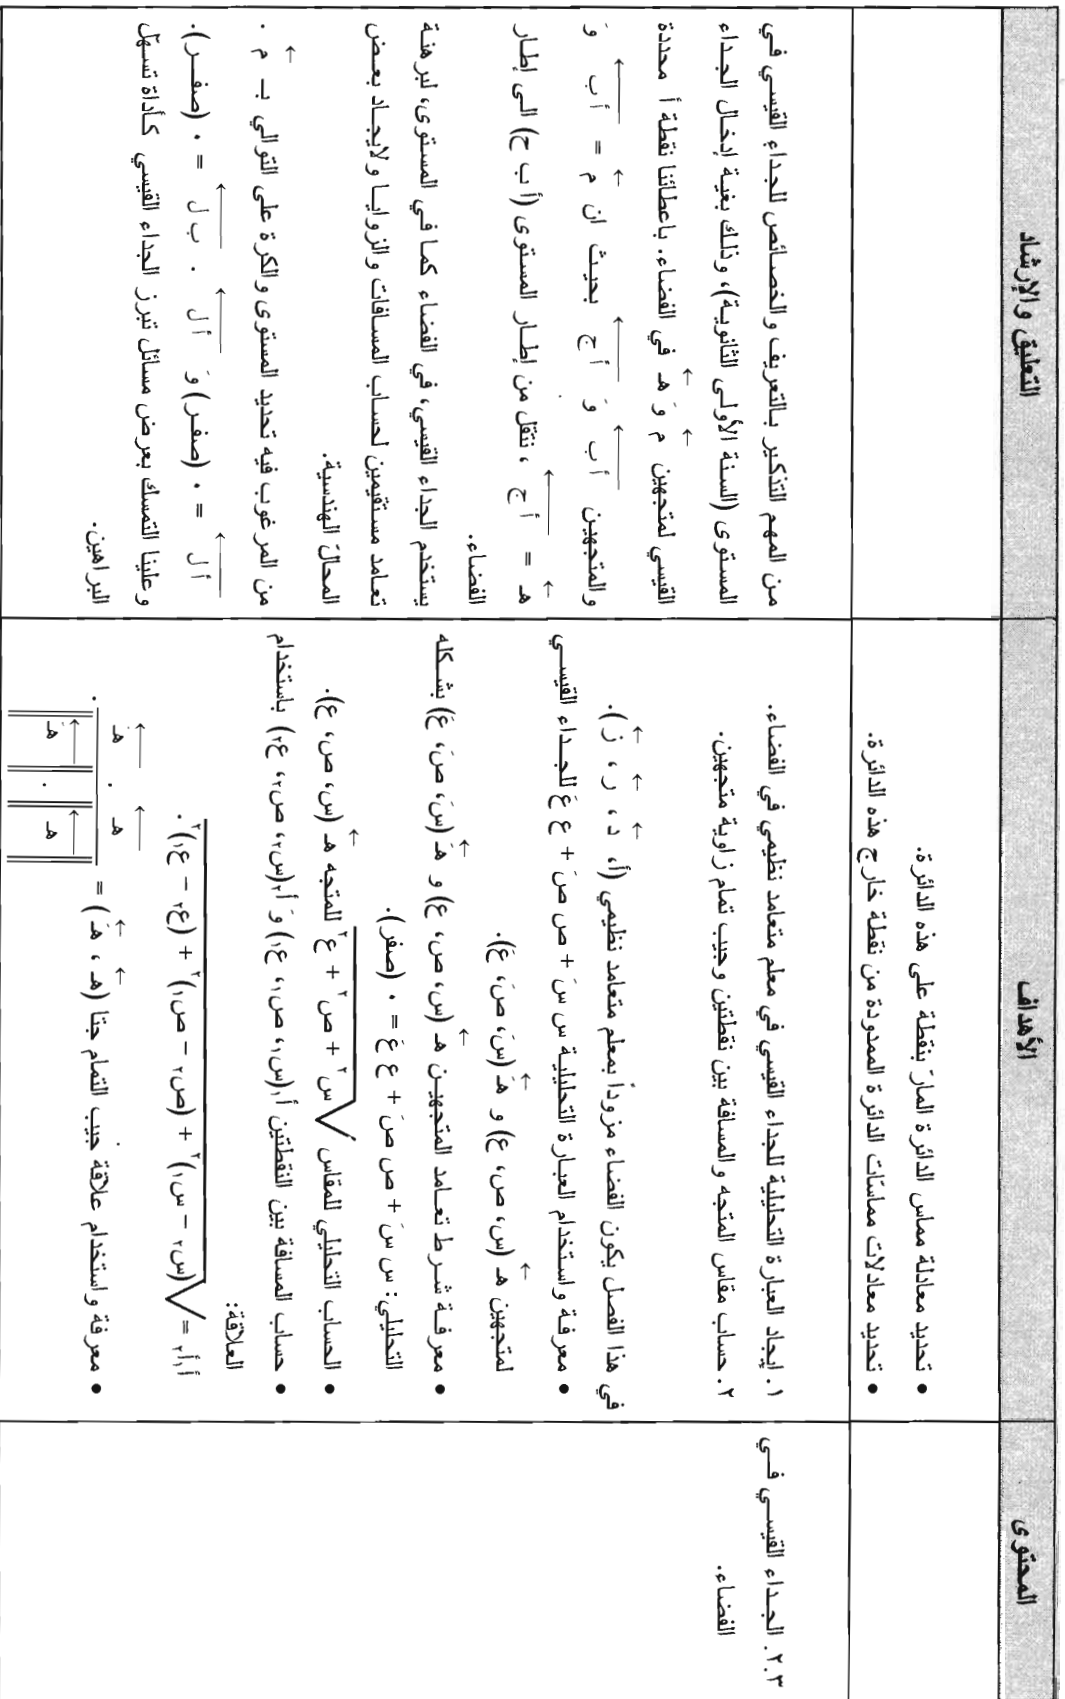 المحتوى
الأهداف
التعليق والإرشاد
• تحديد معادلة مماس الدائرة المارّ بنقطة على هذه الدائرة.
• تحديد معادلات مماسّات الدائرة الممدودة من نقطة خارج هذه الدائرة.
٢.٣. الجداء القيسي في
الفضاء.
١. إيجاد العبارة التحليلية للجداء القيسي في معلم متعامد نظيمي في الفضاء.
٢. حساب مقاس المتجه والمسافة بين نقطتين وجيب تمام زاوية متجهين.
في هذا الفصل يكون الفضاء مزوداً بمعلم متعامد نظيمي (أ، د، ر، ز).
• معرفة واستخدام العبارة التحليلية س سَ + ص صَ + ع عَ للجداء القيسي
لمتجهين هـ (س، ص، ع) و هـَ (سَ، صَ، عَ).
• معرفة شرط تعامد المتجهين هـ (س، ص، ع) و هـَ (سَ، صَ، عَ) بشكله
التحليلي: س سَ + ص صَ + ع عَ = ٠ (صفر).
• الحساب التحليلي للمقاس √س٢ + ص٢ + ع٢ للمتجه هـ (س، ص، ع).
• حساب المسافة بين النقطتين أ١(س١، ص١، ع١) وَ أ٢(س٢، ص٢، ع٢) باستخدام
العلاقة:
أ١أ٢ = √(س٢ − س١)٢ + (ص٢ − ص١)٢ + (ع٢ − ع١)٢ .
• معرفة واستخدام علاقة جيب التمام جتا (هـ ، هـَ) = هـ . هـَ / ||هـ|| . ||هـَ|| .
من المهم التذكير بالتعريف والخصائص للجداء القيسي في
المستوى (السنة الأولى الثانوية)، وذلك بغية إدخال الجداء
القيسي لمتجهين م وَ هـ في الفضاء. باعطائنا نقطة أ محددة
والمتجهين أب وَ أج بحيث ان م = أب وَ
هـ = أج ، ننتقل من إطار المستوى (أ ب ج) الى إطار
الفضاء.
يستخدم الجداء القيسي، في الفضاء كما في المستوى، لبرهنة
تعامد مستقيمين لحساب المسافات والزوايا ولايجاد بعض
المحالّ الهندسية.
من المرغوب فيه تحديد المستوى والكرة على التوالي بـ م .
أل = ٠ (صفر) وَ أل . ب ل = ٠ (صفر).
وعلينا التمسك بعرض مسائل تبرز الجداء القيسي كأداة تسهل
البراهين.